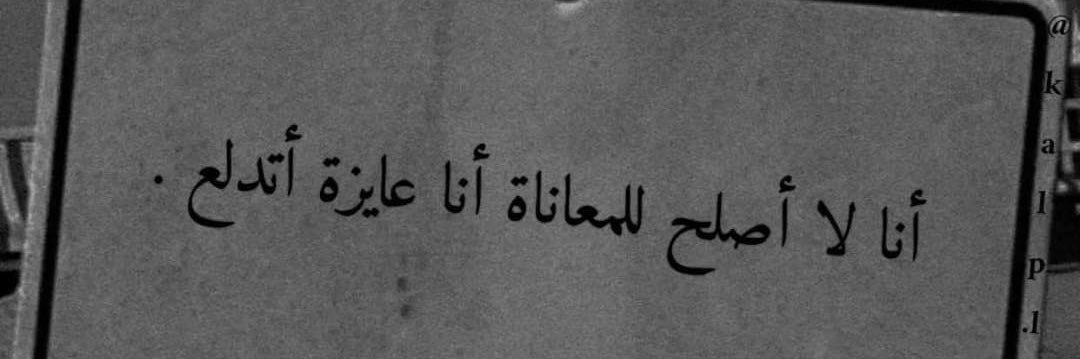 أنا لا أصلح للمعاناة أنا عايزة أتدلع .
@kalpl.